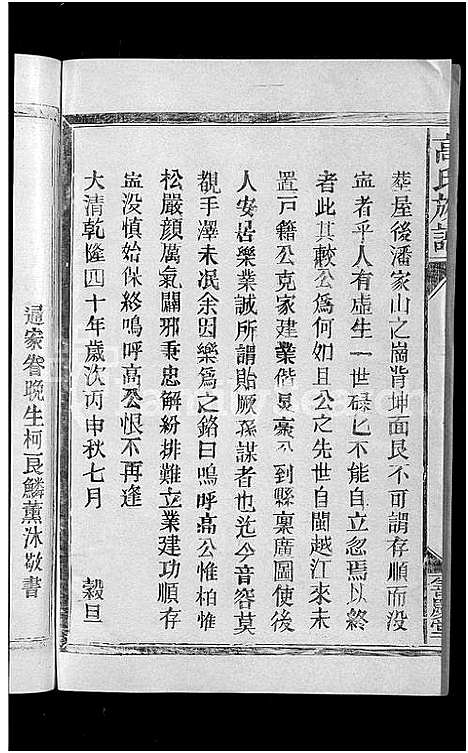 高氏族譜
塟屋後潘家山之崗背坤面艮不可謂存順而没
寍者乎人有虛生一世碌匕不能自立忽焉以終
者此其較公爲何如且公之先世自閩越江來未
置戸籍公克家建業偕
到縣稟廣圖使後
人安居樂業誠所謂貽厥孫謀者也迄今音容莫
覩手澤未泯余因樂爲之銘曰嗚呼高公惟柏惟
松嚴顔厲氣闢邪秉忠解紛排難立業建功順存
寍没慎始保終嗚呼高公恨不再逢
大清乾隆四十年歲次丙申秋七月 穀旦
通家眷晚生柯良鱗薰沐敬書